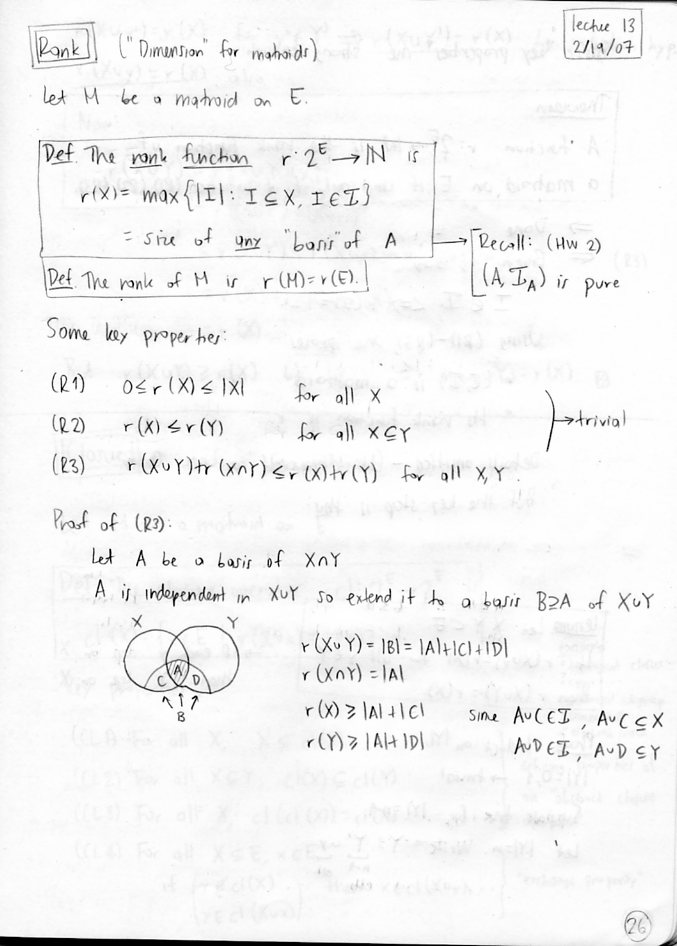 lecture 13
2/19/07
Rank ("Dimension" for matroids)
Let M be a matroid on E.
Def. The rank function r: 2^E → ℕ is
r(X) = max{|I| : I ⊆ X, I ∈ 𝓘}
= size of any "basis" of A
Recall: (HW 2)
(A, 𝓘_A) is pure
Def The rank of M is r(M)=r(E).
Some key properties:
(R1) 0 ≤ r(X) ≤ |X| for all X
(R2) r(X) ≤ r(Y) for all X ⊆ Y
→ trivial
(R3) r(X∪Y)+r(X∩Y) ≤ r(X)+r(Y) for all X,Y.
Proof of (R3):
Let A be a basis of X∩Y
A is independent in X∪Y so extend it to a basis B⊇A of X∪Y
X Y
C A D
B
r(X∪Y) = |B| = |A|+|C|+|D|
r(X∩Y) = |A|
r(X) ≥ |A|+|C| since A∪C∈𝓘, A∪C ⊆ X
r(Y) ≥ |A|+|D| A∪D∈𝓘, A∪D ⊆ Y
26